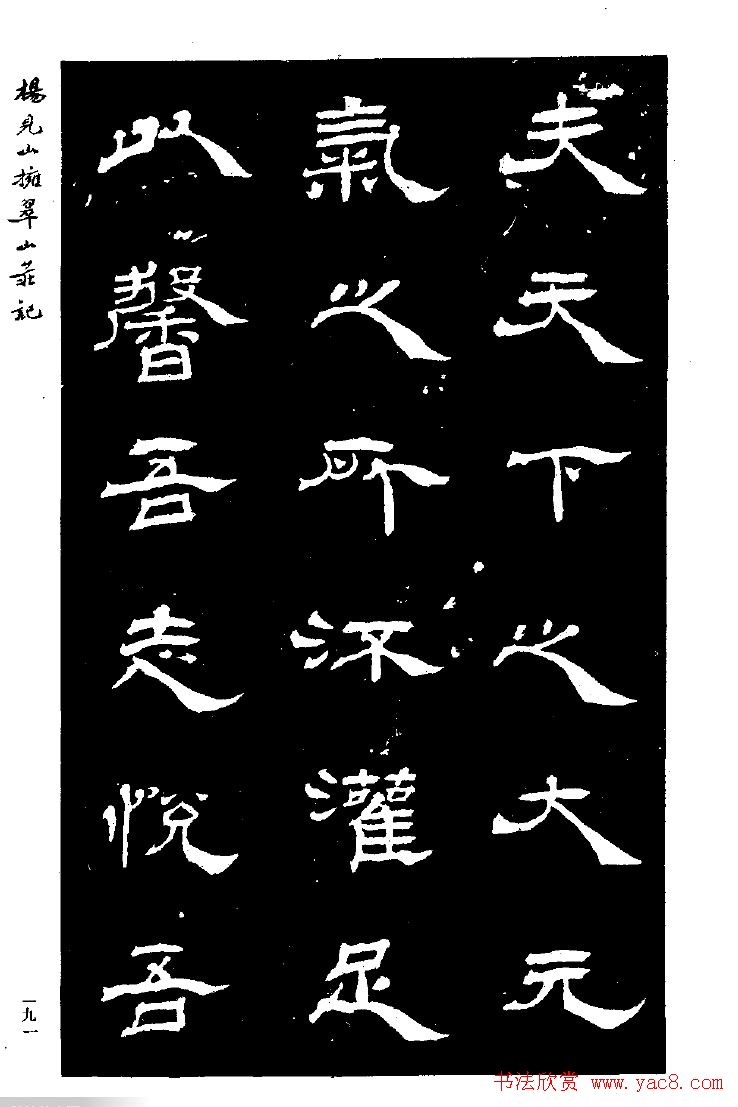 夫天下之大元
氣之所灌足
以馨吾志悅吾
楊見山擁翠山莊記
一九一
书法欣赏 www.yac8.com